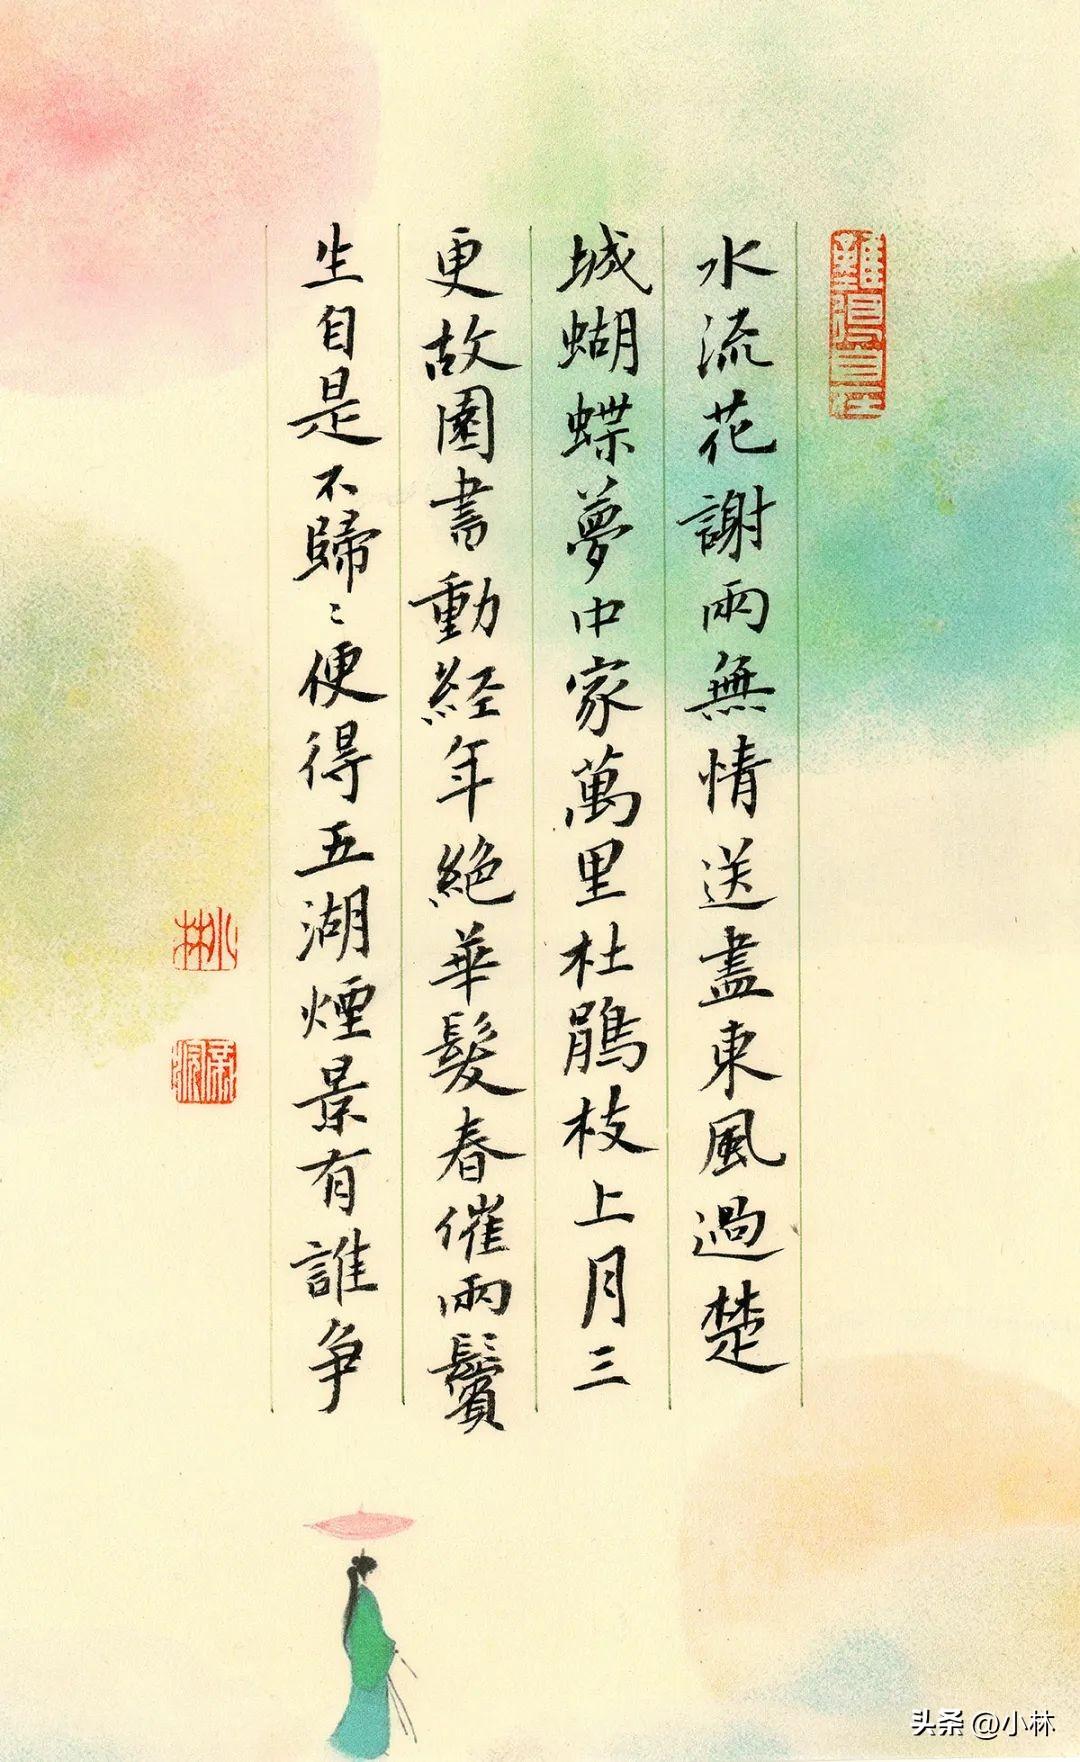 難得自在
水流花謝兩無情送盡東風過楚
城蝴蝶夢中家萬里杜鵑枝上月三
更故園書動経年絕華髮春催兩鬢
生自是不歸〻便得五湖煙景有誰爭
小林
头条 @小林